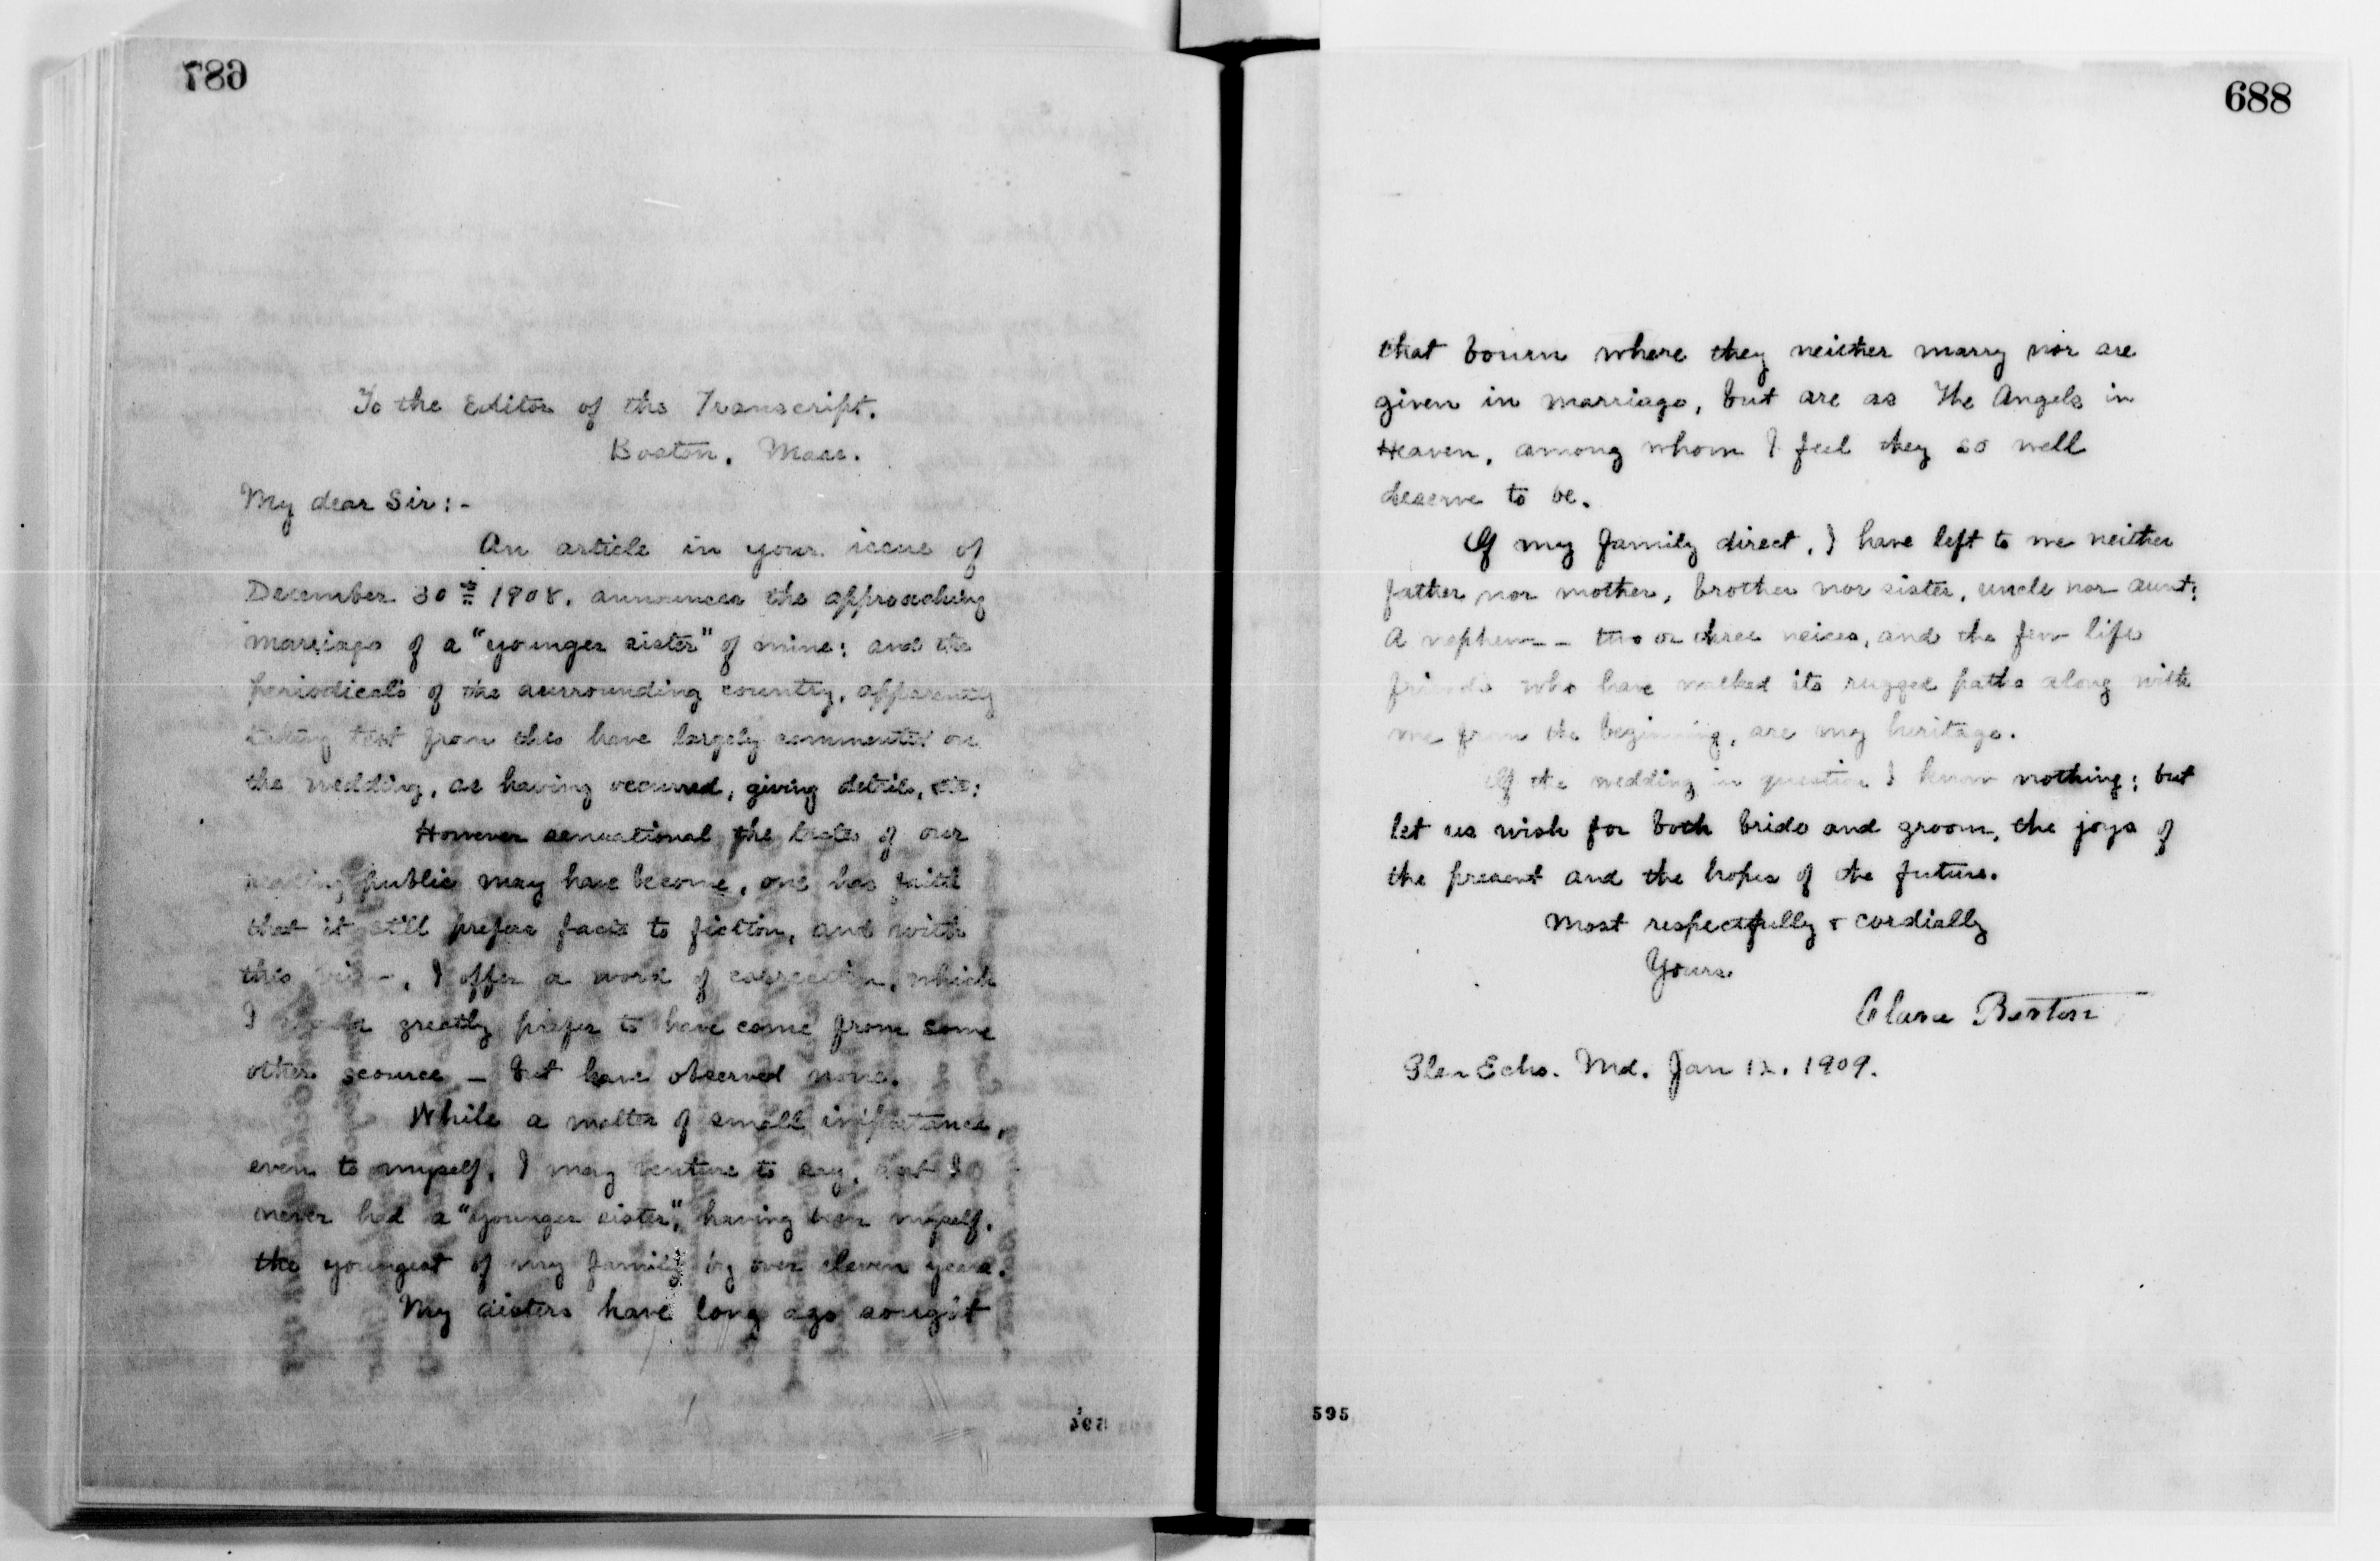 687
To the Editor of the Transcript.
Boston, Mass.
My dear Sir:-
An article in your issue of
December 30th 1908. announces the approaching
marriage of a "younger sister" of mine; and the
periodicals of the surrounding country, apparently
taking text from this have largely commented on
the wedding, as having occurred, giving details, etc:
However sensational the taste of our
reading public may have become, one has faith
that it still prefers facts to fiction, and with
this view, I offer a word of correction, which
I would greatly prefer to have come from some
other scource – but have observed none.
While a matter of small importance,
even to myself, I may venture to say, that I
never had a "younger sister", having been myself,
the youngest of my family by over eleven years.
My sisters have long ago sought
594
688
that bourn where they neither marry nor are
given in marriage, but are as The Angels in
Heaven, among whom I feel they so well
deserve to be.
Of my family direct, I have left to me neither
father nor mother, brother nor sister, uncle nor aunt;
A nephew – two or three neices, and the few life
friends who have walked its rugged paths along with
me from the beginning, are my heritage.
Of the wedding in question I know nothing; but
let us wish for both bride and groom, the joys of
the present and the hopes of the future.
Most respectfully & cordially
Yours
Clara Barton
Glen Echo. Md. Jan 12. 1909.
595